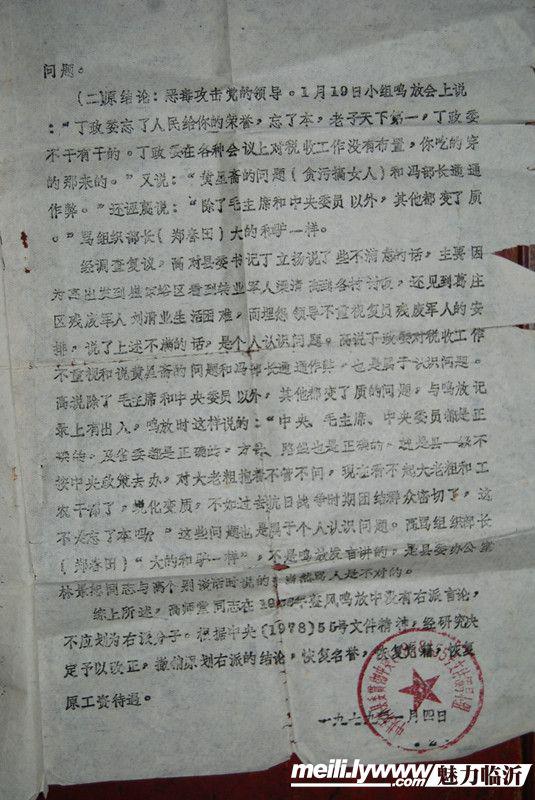 问题。
(二)原结论：恶毒攻击党的领导。1月19日小组鸣放会上说
："丁政委忘了人民给你的荣誉，忘了本，老子天下第一，丁政委
不干有干的。丁政委在各种会议上对税收工作没有布置，你吃的穿
的那来的。"又说："黄星斋的问题(贪污搞女人)和冯部长通通
作弊。"还诬蔑说："除了毛主席和中央委员以外，其他都变了质
。"骂组织部长(郑春田)大的和驴一样。
经调查复议，高对县委书记丁立扬说了些不满意的话，主要因
为高出发到 区看到转业军人梁清 到各村讨饭，还见到葛庄
区残废军人刘清业生活困难，而埋怨领导不重视复员残废军人的安
排，说了上述不满的话，是个人认识问题。高说丁政委对税收工作
不重视和说黄星斋的问题和冯部长通通作弊，也是属于认识问题。
高说除了毛主席和中央委员以外，其他都变了质的问题，与鸣放记
录上有出入，鸣放时这样说的："中央、毛主席、中央委员都是正
确的。至省委都是正确的，方针、路线也是正确的。就是县一级不
按中央政策去办，对大老粗抱着不管不问，现在看不起大老粗和工
农干部了，规化变质，不如过去抗日战争时期团结群众密切了，这
不是忘了本吗？"这些问题也是属于个人认识问题。高骂组织部长
(郑春田)"大的和驴一样"，不是鸣放发言讲的，是县委办公室
林 同志与高个别谈话时说的，当然骂人是不对的。
综上所述，高师堂同志在19 年整风鸣放中没有右派言论，
不应划为右派分子。根据中央(1978)55号文件精神，经研究决
定予以改正，撤销原划右派的结论，恢复名誉，恢复党籍，恢复
原工资待遇。
一九七九年一月四日
meili.lywww.com 魅力临沂